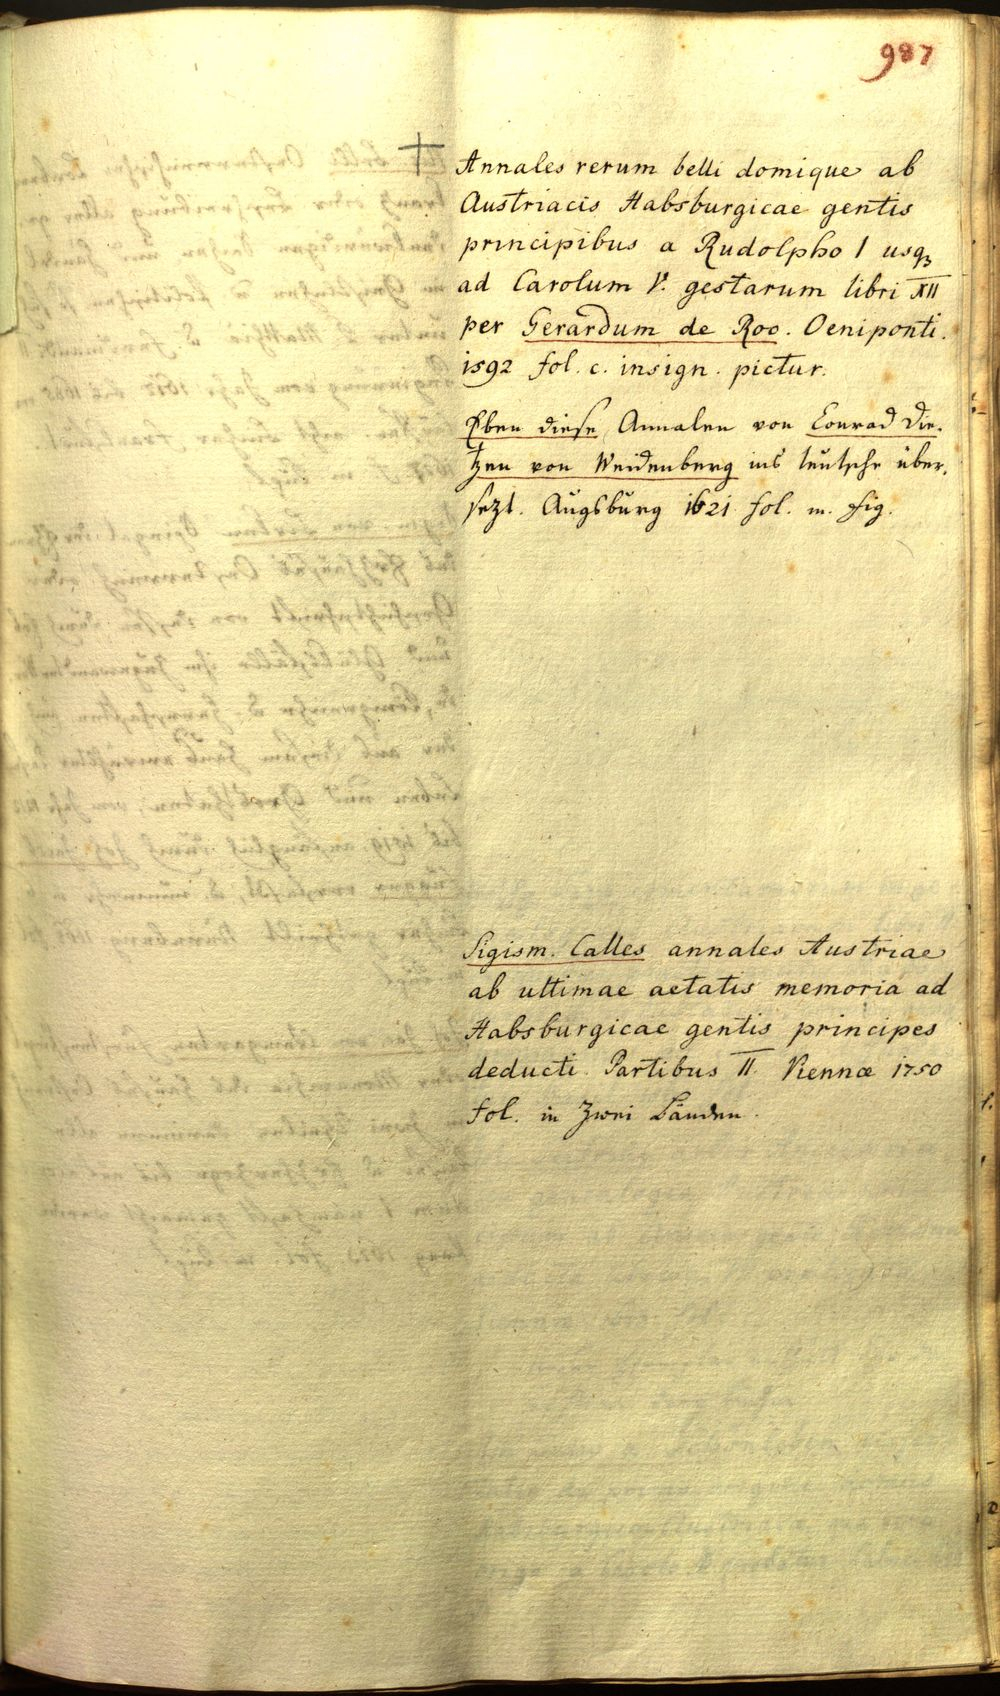 987
Annales rerum belli domique ab
Austriacis Habsburgicae gentis
principibus a Rudolpho I usqꝫ
ad Carolum V. gestarum libri XII
per Gerardum de Roo. Oeniponti.
1592 fol. c. insign. pictur.
Eben diese Annalen von Conrad Die-
tzen von Weidenberg ins teutsche über-
sezt. Augsburg 1621 fol. m. fig.
Sigism. Calles annales Austriae
ab ultimae aetatis memoria ad
Habsburgicae gentis principes
deducti. Partibus II. Viennæ 1750
fol. in zwei Bänden.